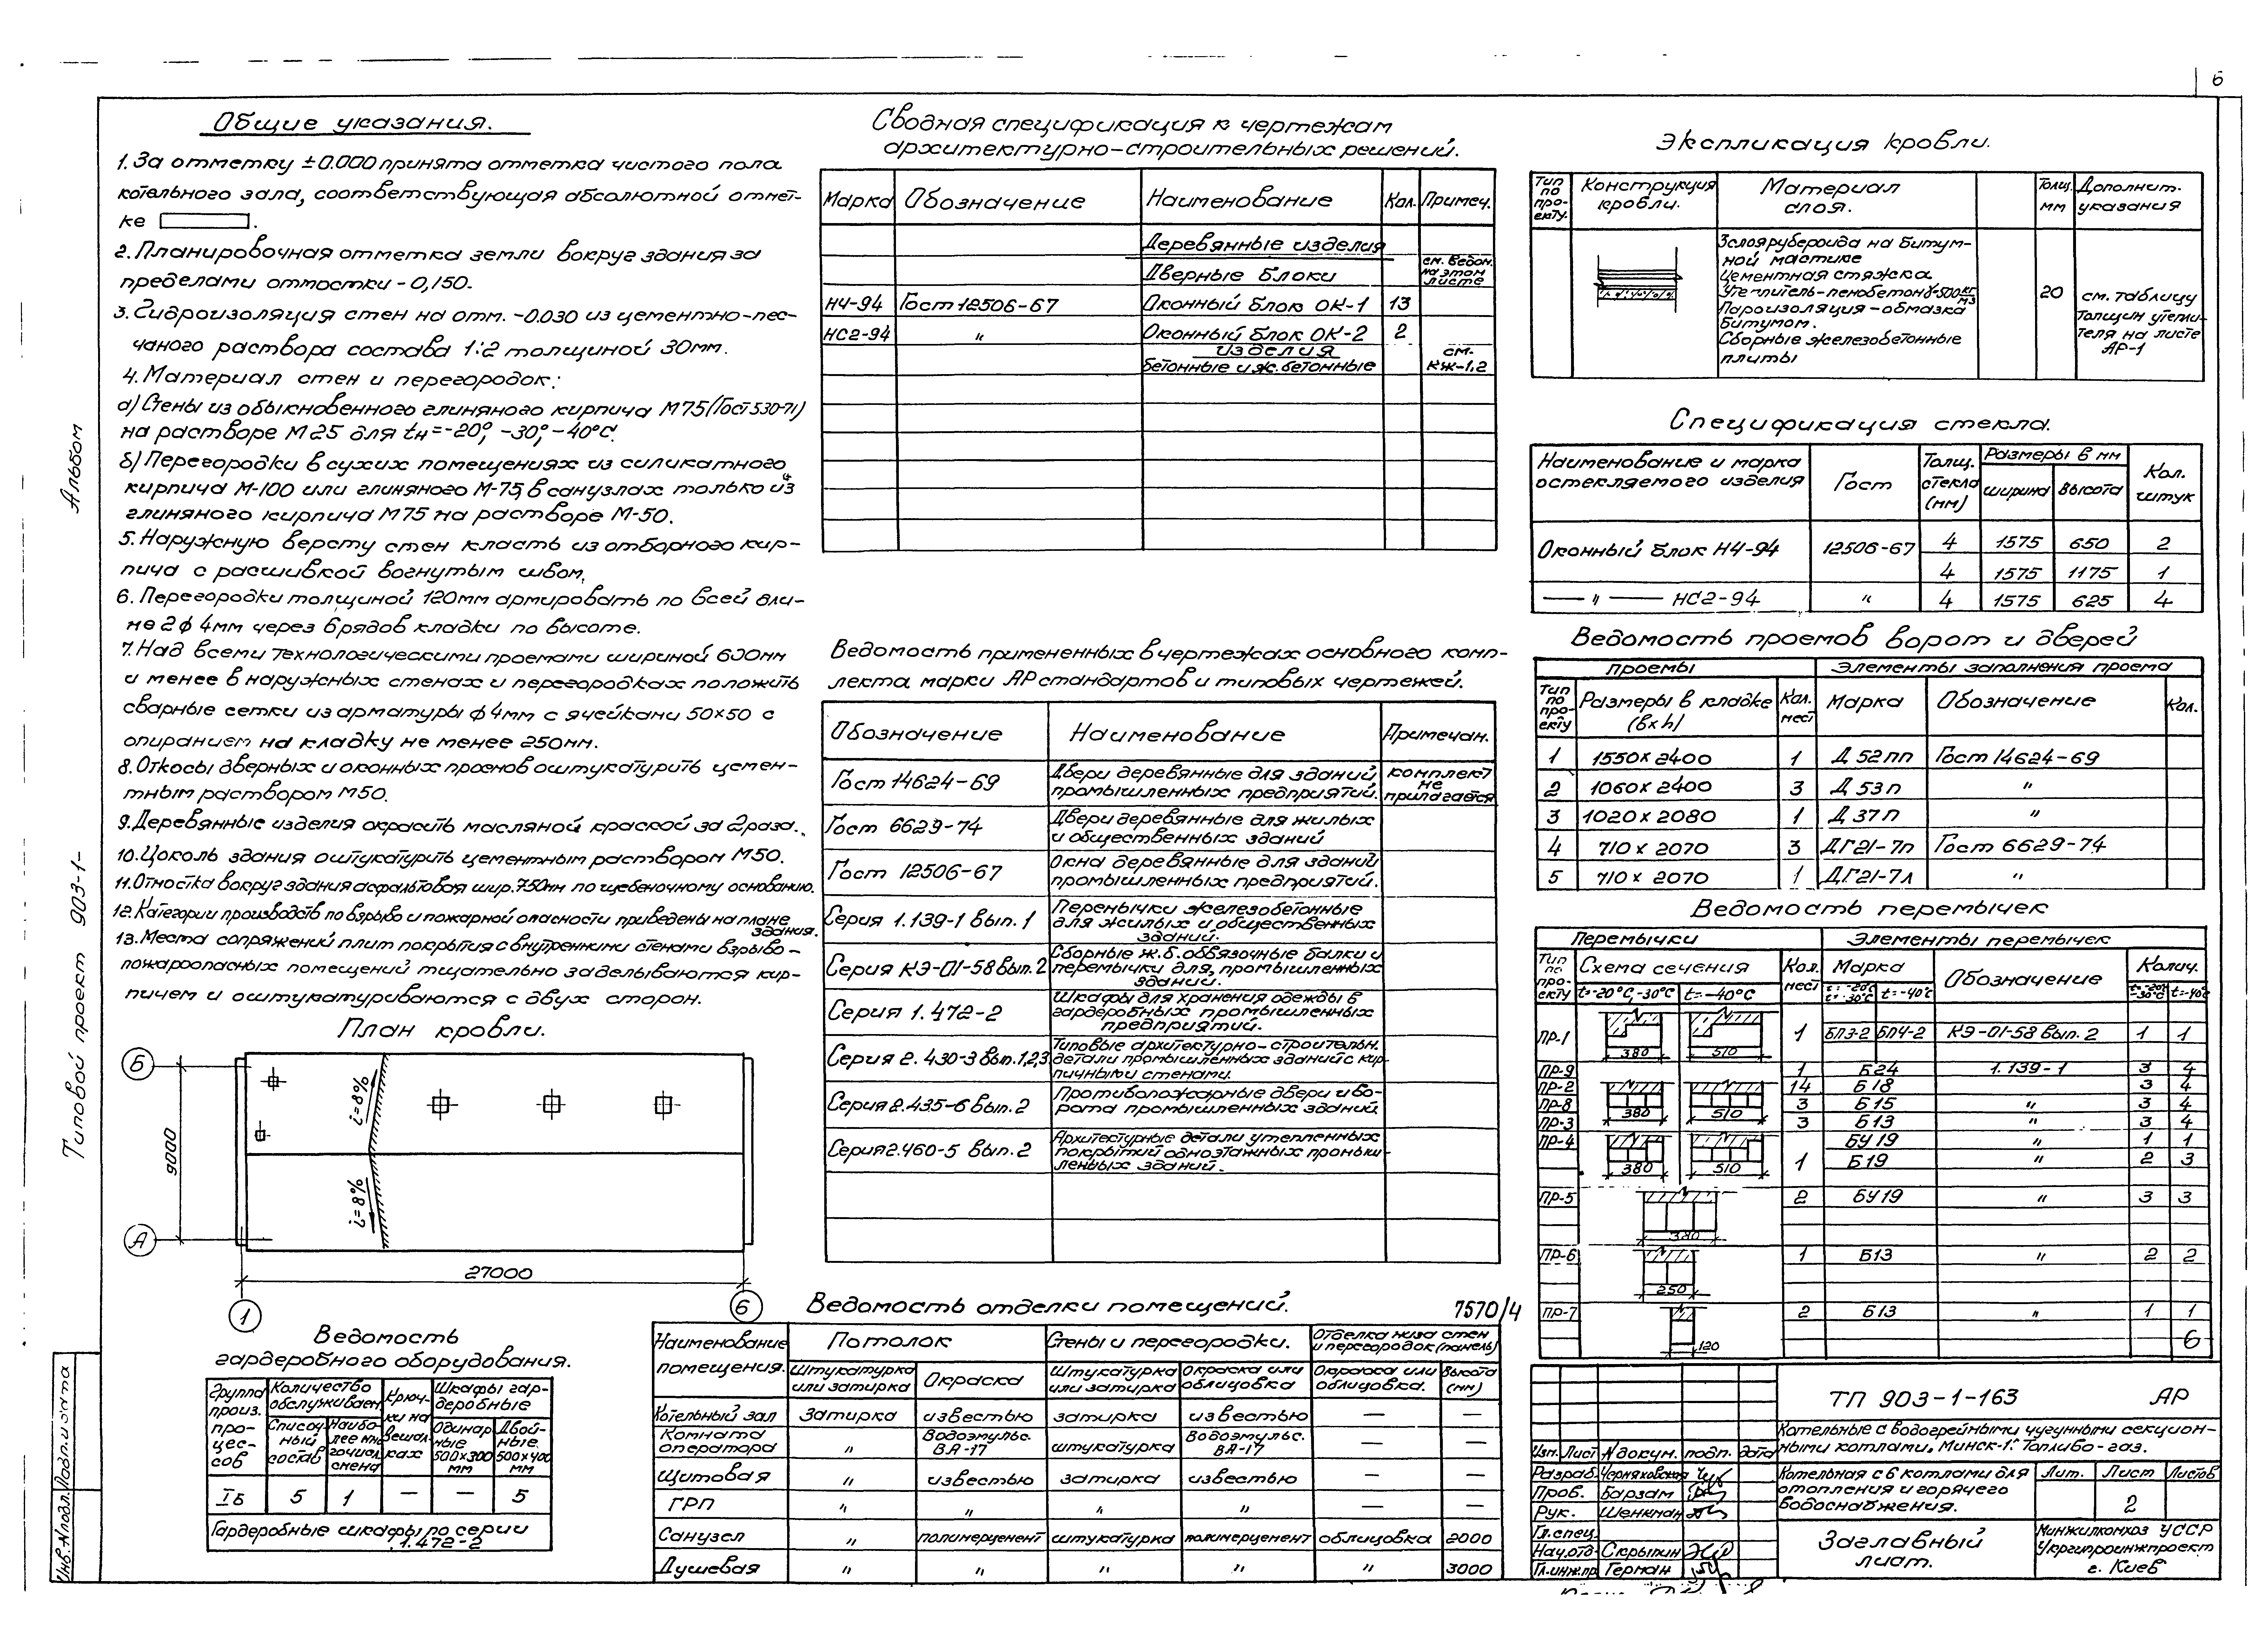 6
Общие указания.
1. За отметку ±0.000 принята отметка чистого пола
котельного зала, соответствующая абсолютной отмет-
ке
2. Планировочная отметка земли вокруг здания за
пределами отмостки - 0,150.
3. Гидроизоляция стен на отм. -0.030 из цементно-пес-
чаного раствора состава 1:2 толщиной 30мм.
4. Материал стен и перегородок:
а) Стены из обыкновенного глиняного кирпича М75 (Гост 530-71)
на растворе М25 для tн=-20°, -30°, -40°С.
б) Перегородки в сухих помещениях из силикатного
кирпича М-100 или глиняного М-75, в санузлах только из
глиняного кирпича М75 на растворе М-50.
5. Наружную версту стен класть из отборного кир-
пича с расшивкой вогнутым швом.
6. Перегородки толщиной 120мм армировать по всей дли-
не 2ф 4мм через 6 рядов кладки по высоте.
7. Над всеми технологическими проемами шириной 600мм
и менее в наружных стенах и перегородках положить
сварные сетки из арматуры ф 4мм с ячейками 50×50 с
опиранием на кладку не менее 250мм.
8. Откосы дверных и оконных проемов оштукатурить цемен-
тным раствором М50.
9. Деревянные изделия окрасить масляной краской за 2 раза.
10. Цоколь здания оштукатурить цементным раствором М50.
11. Отмостка вокруг здания асфальтовая шир. 750мм по щебеночному основанию.
12. Категории производств по взрыво и пожарной опасности приведены на плане
здания.
13. Места сопряжений плит покрытия с внутренними стенами взрыво-
пожароопасных помещений тщательно заделываются кир-
пичем и оштукатуриваются с двух сторон.
План кровли.
Б
А
9000
i=8%
i=8%
27000
1
6
Ведомость
гардеробного оборудования.
Группа произ. про-цес-сов
Количество обслуживаем.
Списочный состав
Наибо-лее мно-гочисл. смена
Крюч-ки на вешал-ках
Шкафы гар-деробные
Одинар-ные 500×300 мм
Двой-ные 500×400 мм
Iб 5 1 — — 5
Гардеробные шкафы по серии
1.472-2
Сводная спецификация к чертежам
архитектурно-строительных решений.
Марка Обозначение Наименование Кол. Примеч.
Деревянные изделия
Дверные блоки см. ведом. на этом листе
НЧ-94 Гост 12506-67 Оконный блок ОК-1 13
НС2-94 " Оконный блок ОК-2 2
изделия
бетонные и ж.бетонные см. КЖ-1,2
Ведомость примененных в чертежах основного комп-
лекта марки АР стандартов и типовых чертежей.
Обозначение Наименование Примечан.
Гост 14624-69 Двери деревянные для зданий промышленных предприятий. комплект не прилагается
Гост 6629-74 Двери деревянные для жилых и общественных зданий
Гост 12506-67 Окна деревянные для зданий промышленных предприятий.
Серия 1.139-1 вып. 1 Перемычки железобетонные для жилых и общественных зданий.
Серия КЭ-01-58 вып. 2 Сборные ж.б. обвязочные балки и перемычки для промышленных зданий.
Серия 1.472-2 Шкафы для хранения одежды в гардеробных промышленных предприятий.
Серия 2.430-3 вып. 1,2,3 Типовые архитектурно-строительн. детали промышленных зданий с кир-пичными стенами.
Серия 2.435-6 вып. 2 Противопожарные двери и во-рота промышленных зданий.
Серия 2.460-5 вып. 2 Архитектурные детали утепленных покрытий одноэтажных промыш-ленных зданий.
Ведомость отделки помещений.
7570/4
Наименование помещения. Потолок Стены и перегородки. Отделка низа стен и перегородок (панель)
Штукатурка или затирка Окраска Штукатурка или затирка Окраска или облицовка Окраска или облицовка. Высота (мм)
Котельный зал Затирка известью затирка известью — —
Комната оператора " Водоэмульс. ВА-17 штукатурка Водоэмульс. ВА-17
Щитовая " известью затирка известью — —
ГРП " " " " — —
Санузел " полимерцемент штукатурка полимерцемент облицовка 2000
Душевая " " " " " 3000
Экспликация кровли.
Тип по про-екту. Конструкция кровли. Материал слоя. Толщ. мм Дополнит. указания
3 слоя рубероида на битум-
ной мастике
Цементная стяжка 20
Утеплитель-пенобетон γ=500 кг/м3
Пароизоляция-обмазка
битумом.
Сборные железобетонные
плиты
см. таблицу толщин утепли-теля на листе АР-1
Спецификация стекла.
Наименование и марка остекляемого изделия Гост Толщ. стекла (мм) Размеры в мм ширина высота Кол. штук
Оконный блок НЧ-94 12506-67 4 1575 650 2
4 1575 1175 1
— " — НС2-94 " 4 1575 625 4
Ведомость проемов ворот и дверей
проемы Элементы заполнения проема
Тип по про-екту Размеры в кладке (в×h) Кол. мест Марка Обозначение Кол.
1 1550×2400 1 Д 52пп Гост 14624-69
2 1060×2400 3 Д 53п "
3 1020×2080 1 Д 37п "
4 710×2070 3 ДГ21-7п Гост 6629-74
5 710×2070 1 ДГ21-7л "
Ведомость перемычек
Перемычки Элементы перемычек
Тип по про-екту Схема сечения Кол. мест Марка Обозначение Колич.
t=-20°С,-30°С t=-40°С t=-20°С t=-30°С t=-40°С t=-20° -30°С t=-40°С
ПР-1 380 510 1 БП3-2 БП4-2 КЭ-01-58 вып. 2 1 1
ПР-9 1 Б24 1.139-1 3 4
ПР-2 14 Б18 3 4
ПР-8 380 510 3 Б15 " 3 4
ПР-3 3 Б13 " 3 4
ПР-4 БУ19 " 1 1
380 510 1 Б19 " 2 3
ПР-5 380 2 БУ19 " 3 3
ПР-6 250 1 Б13 " 2 2
ПР-7 120 2 Б13 " 1 1
6
ТП 903-1-163 АР
Котельные с водогрейными чугунными секцион-
ными котлами „Минск-1". Топливо-газ.
Изм. Лист N докум. подп. дата
Разраб. Черняховская
Пров. Барзам
Рук. Шенкман
Гл.спец.
Нач.отд. Скрыпин
Гл.инж.пр. Герман
Котельная с 6 котлами для
отопления и горячего
водоснабжения.
Лит. Лист Листов
2
Заглавный
лист.
Минжилкомхоз УССР
Укргипроинжпроект
г. Киев
Альбом
Типовой проект 903-1-
Инв.N подл. Подп. и дата